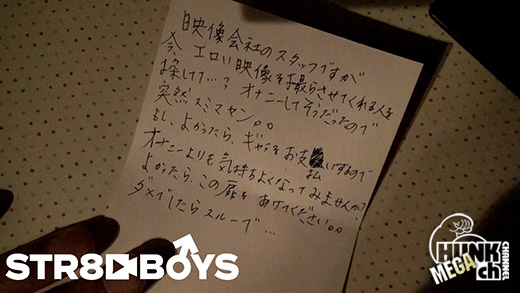 映像会社のスタッフですが
今、エロい映像を撮らさせてくれる人を
探してて…? オナニーしてそうだったので
突然スミマセン。。
もし、よかったら、ギャラをお支払いするので
私
オナニーよりも気持ちよくなってみませんか?
よかったら、この扉をあけてください。。
ダメでしたらスルーで…
STR8BOYS
HUNK
CHANNEL
MEGA
ch